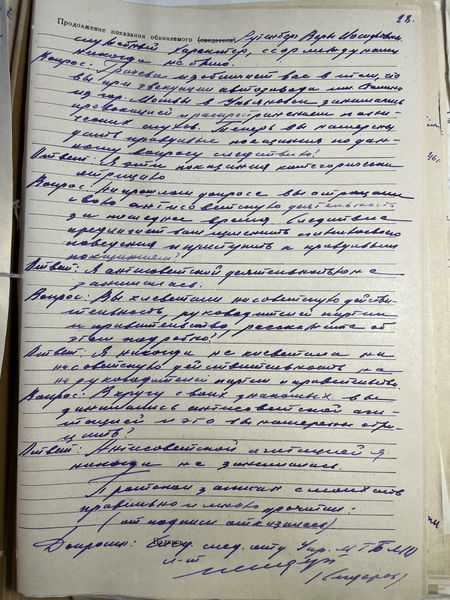 28.
Продолжение показания обвиняемого (свидетеля) Рутенберг Веры Иосифовны
служебный характер, ссор между нами
никогда не было.
Вопрос: Грачева изобличает вас в том, что
вы при эвакуации автозавода им. Сталина
из гор. Москвы в Ульяновск занимались
провокацией и распространением паниче-
ских слухов. Теперь вы намерены
дать правдивые показания по дан-
ному вопросу следствию?
Ответ: Я эти показания категорически
отрицаю
Вопрос: На прошлом допросе вы отрицали
свою антисоветскую деятельность
за последнее время. Следствие
предлагает вам изменить
поведения и приступить к правдивым
показаниям?
Ответ: Я антисоветской деятельностью не
занималась.
Вопрос: Вы клеветали на советскую действи-
тельность, руководителей партии
и правительства, расскажите об
этом подробно?
Ответ: Я никогда не клеветала на
советскую действительность и
на руководителей партии и правительства.
Вопрос: В кругу своих знакомых вы
занимались антисоветской аги-
тацией и это вы намерены отри-
цать.
Ответ: Антисоветской агитацией я
никогда не занималась.
Протокол записан с моих слов
правильно и мною прочитан:
(от подписи отказалась)
Допросил: след. отд Упр. МГБ
л-т
(Сидоров)